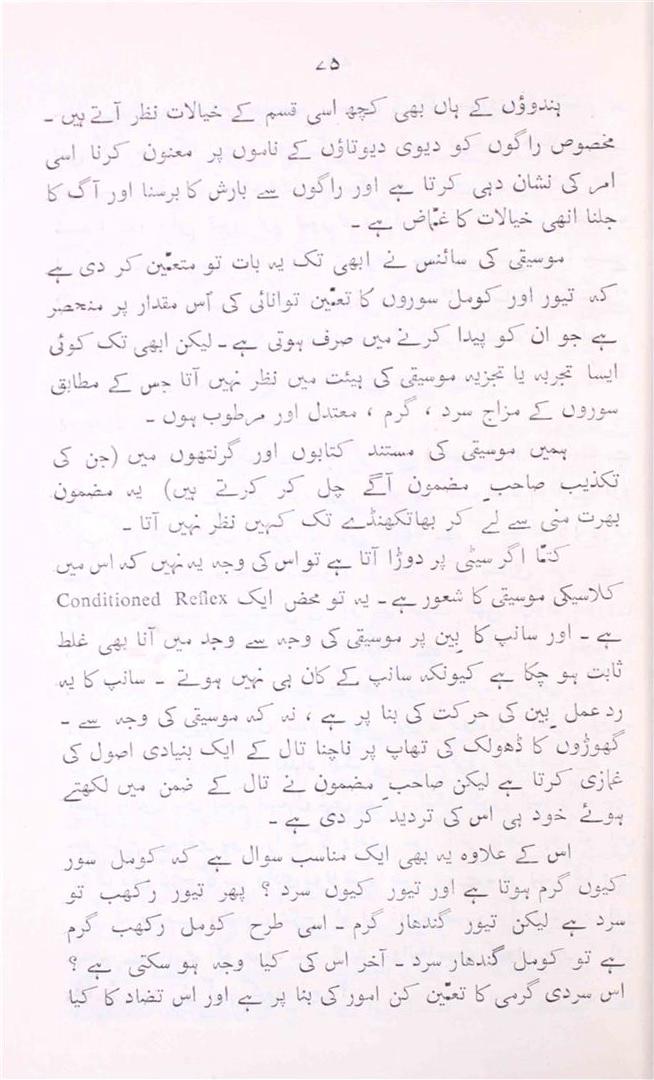 ۷۵
ہندوؤں کے ہاں بھی کچھ اسی قسم کے خیالات نظر آتے ہیں ۔
مخصوص راگوں کو دیوی دیوتاؤں کے ناموں پر معنون کرنا اسی
امر کی نشان دہی کرتا ہے اور راگوں سے بارش کا برسنا اور آگ کا
جلنا انھی خیالات کا غمّاض ہے ۔
موسیقی کی سائنس نے ابھی تک یہ بات تو متعیّن کر دی ہے
کہ تیور اور کومل سوروں کا تعیّن توانائی کی اُس مقدار پر منحصر
ہے جو ان کو پیدا کرنے میں صرف ہوتی ہے ۔ لیکن ابھی تک کوئی
ایسا تجربہ یا تجزیہ موسیقی کی ہیئت میں نظر نہیں آتا جس کے مطابق
سوروں کے مزاج سرد ، گرم ، معتدل اور مرطوب ہوں ۔
ہمیں موسیقی کی مستند کتابوں اور گرنتھوں میں (جن کی
تکذیب صاحبِ مضمون آگے چل کر کرتے ہیں) یہ مضمون
بھرت منی سے لے کر بھاتکھنڈے تک کہیں نظر نہیں آتا ۔
کتّا اگر سیٹی پر دوڑا آتا ہے تو اس کی وجہ یہ نہیں کہ اس میں
کلاسیکی موسیقی کا شعور ہے ۔ یہ تو محض ایک Conditioned Reflex
ہے ۔ اور سانپ کا بِین پر موسیقی کی وجہ سے وجد میں آنا بھی غلط
ثابت ہو چکا ہے کیونکہ سانپ کے کان ہی نہیں ہوتے ۔ سانپ کا یہ
رد عمل بِین کی حرکت کی بنا پر ہے ، نہ کہ موسیقی کی وجہ سے ۔
گھوڑوں کا ڈھولک کی تھاپ پر ناچنا تال کے ایک بنیادی اصول کی
غمازی کرتا ہے لیکن صاحبِ مضمون نے تال کے ضمن میں لکھتے
ہوئے خود ہی اس کی تردید کر دی ہے ۔
اس کے علاوہ یہ بھی ایک مناسب سوال ہے کہ کومل سور
کیوں گرم ہوتا ہے اور تیور کیوں سرد ؟ پھر تیور رکھب تو
سرد ہے لیکن تیور گندھار گرم ۔ اسی طرح کومل رکھب گرم
ہے تو کومل گندھار سرد ۔ آخر اس کی کیا وجہ ہو سکتی ہے ؟
اس سردی گرمی کا تعیّن کن امور کی بنا پر ہے اور اس تضاد کا کیا